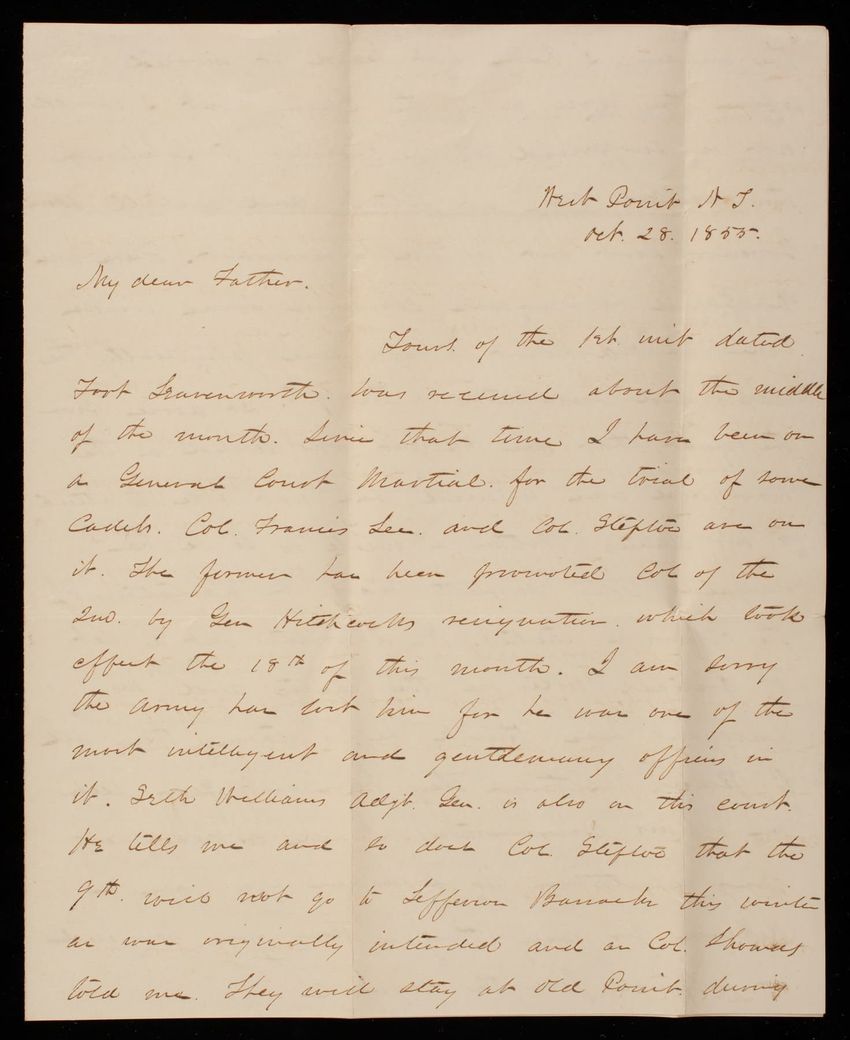 West Point N Y.
Oct. 28. 1855.
My dear Father.
Yours. of the 1st. inst dated
Fort Leavenworth. was received about the middle
of the month. Since that time I have been on
a General Court Martial. for the trial of some
Cadets. Col. Francis Lee. and Col. Steptoe are on
it. The former has been promoted Col of the
2nd. by Gen Hitchcocks resignation. which took
effect the 18th of this month. I am sorry
the army has lost him for he was one of the
most intelligent and gentlemany officers in
it. Seth Williams Adgt. Gen. is also on this court.
He tells me and so does Col. Steptoe that the
9th. will not go to Jefferson Barracks this winter
as was originally intended and as Col. Thomas
told me. They will stay at Old Point. during